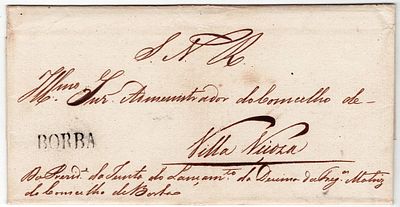 S. N. R.
Illmo. Snr. Admenistrador do Concelho de
BORBA
Villa Viçoza
Do Prezide. da Junta do Lançamto. da Decima da Frega. Matriz
do Concelho de Borba